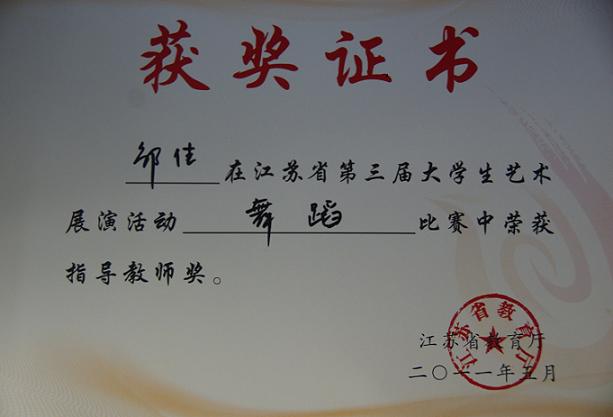 获奖证书
邹佳在江苏省第三届大学生艺术
展演活动舞蹈比赛中荣获
指导教师奖。
江苏省教育厅
二〇一一年五月
江苏省教育厅